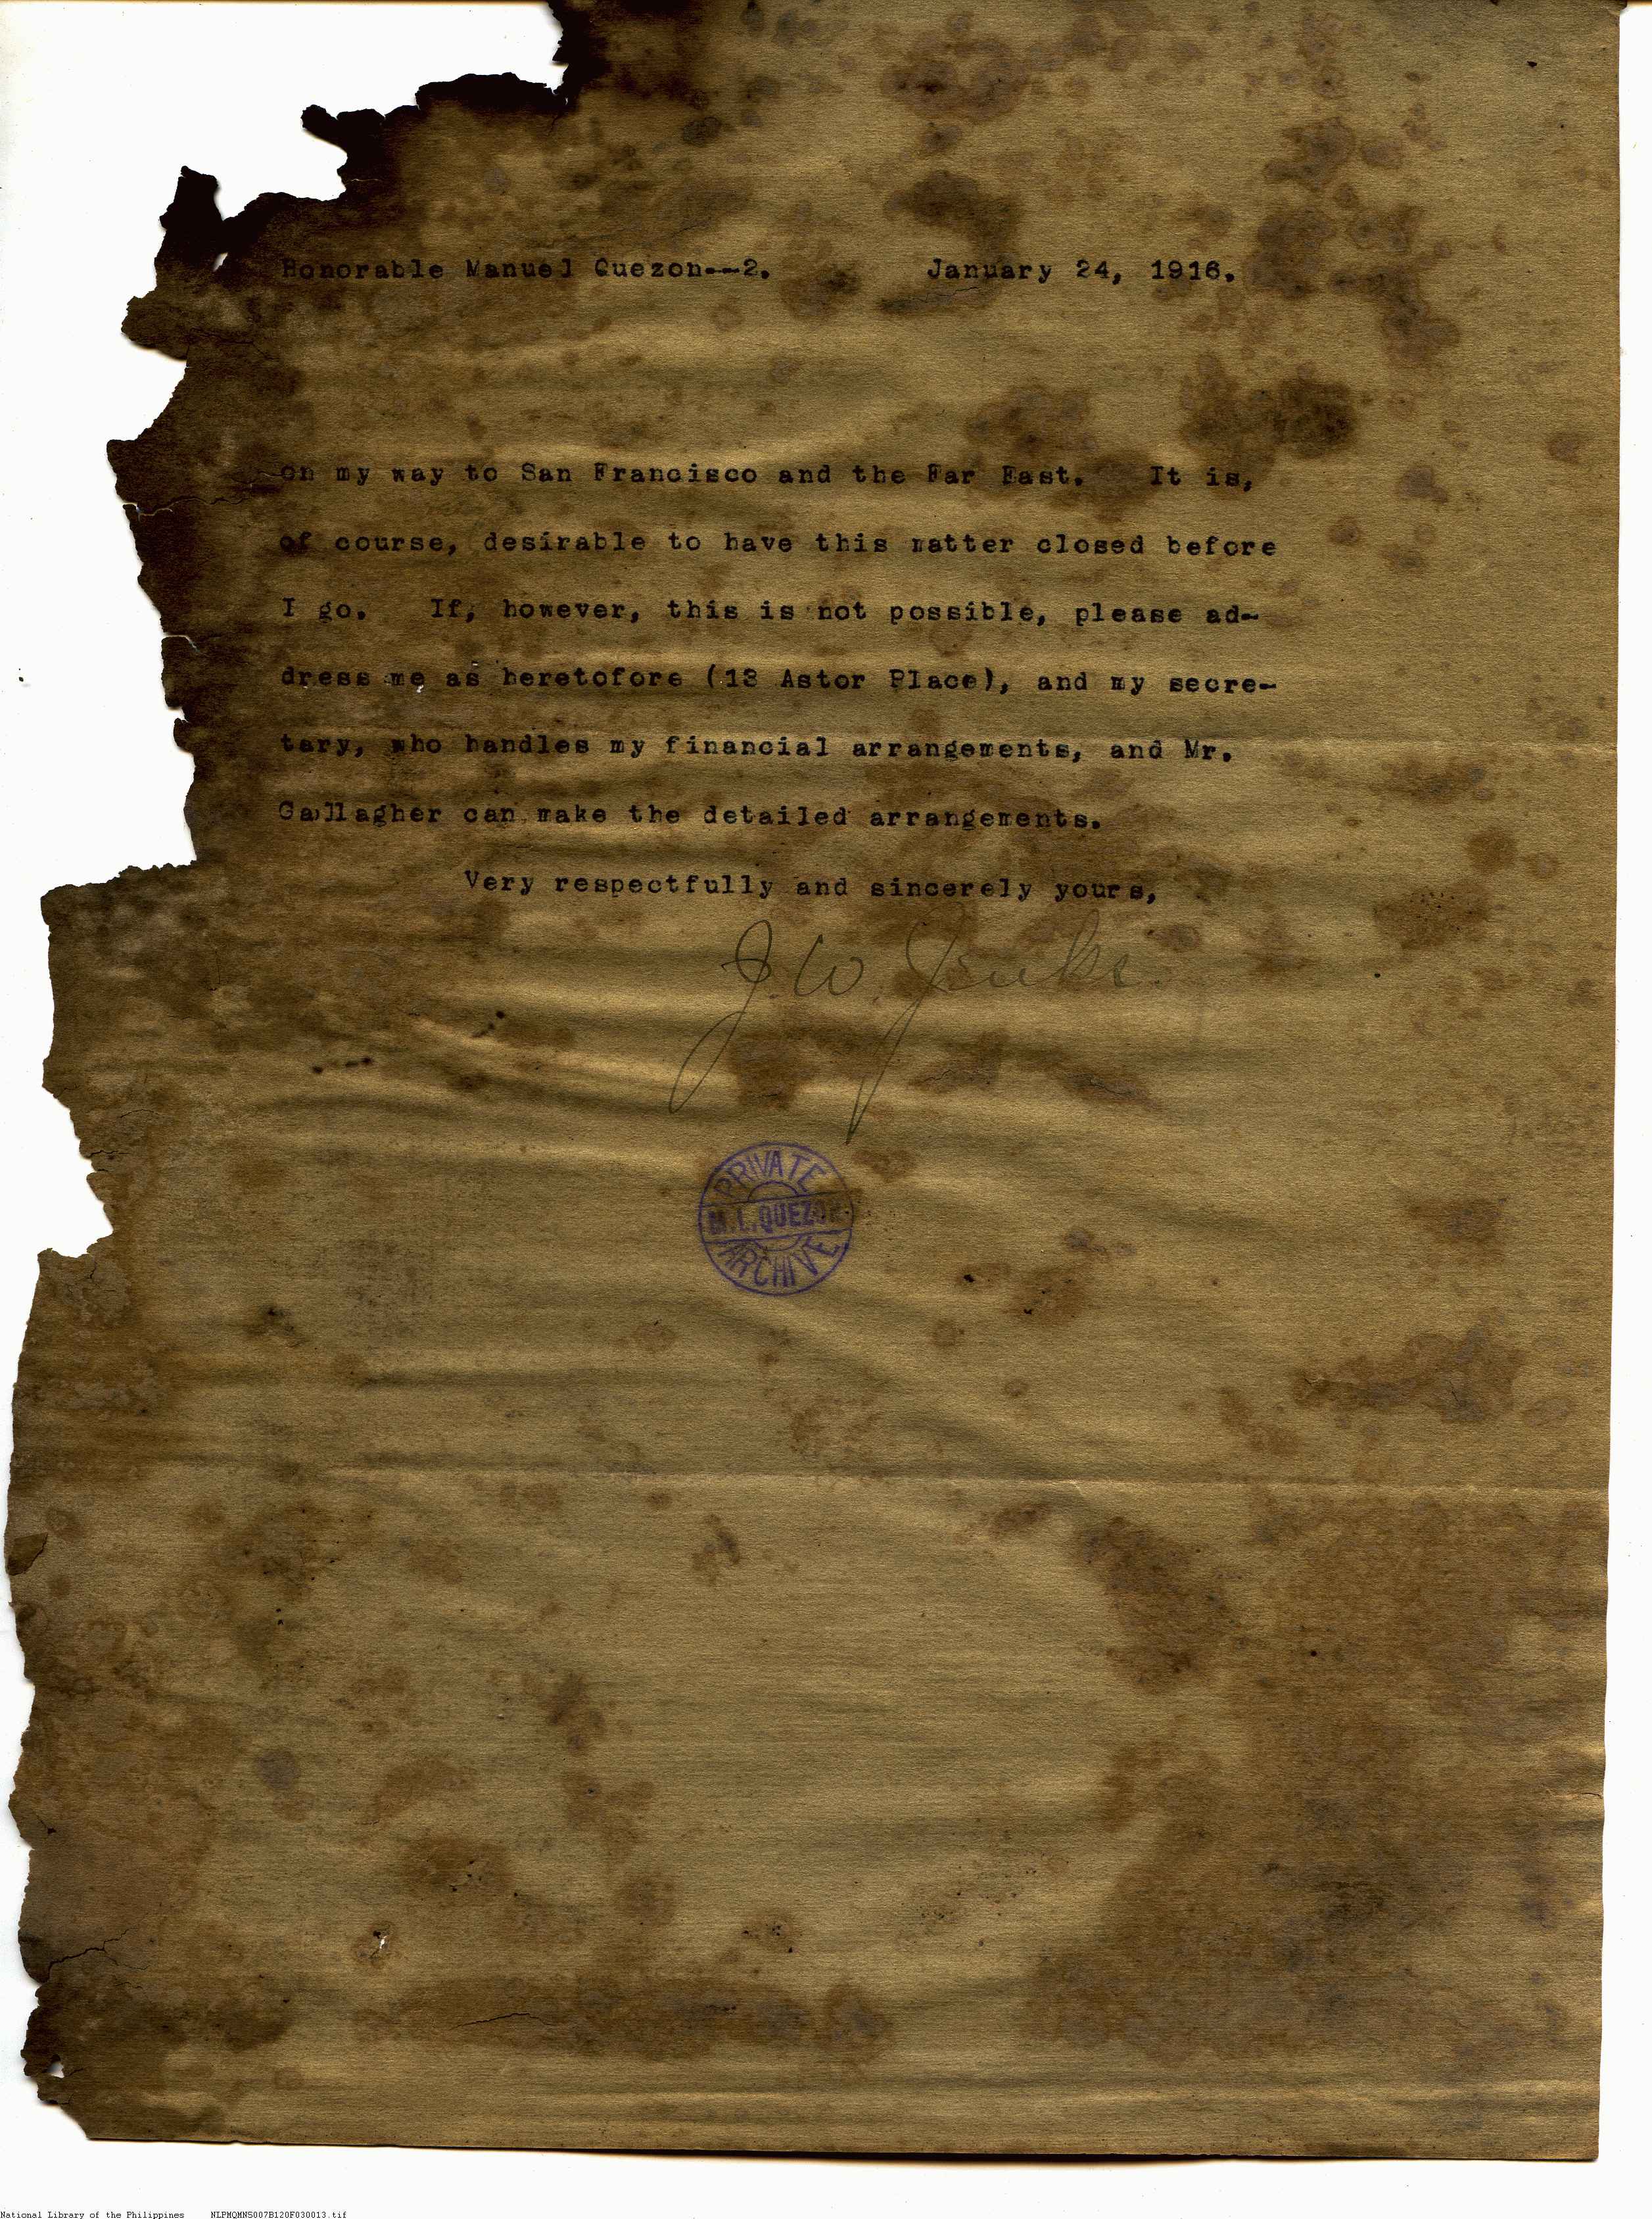 Honorable Manuel Quezon---2. January 24, 1916.
on my way to San Francisco and the Far East. It is,
of course, desirable to have this matter closed before
I go. If, however, this is not possible, please ad-
dress me as heretofore (13 Astor Place), and my secre-
tary, who handles my financial arrangements, and Mr.
Gallagher can make the detailed arrangements.
Very respectfully and sincerely yours,
J. W. Jenks.
PRIVATE
M. L. QUEZON
ARCHIVE
National Library of the Philippines NLPMQMNS007B120F030013.tif